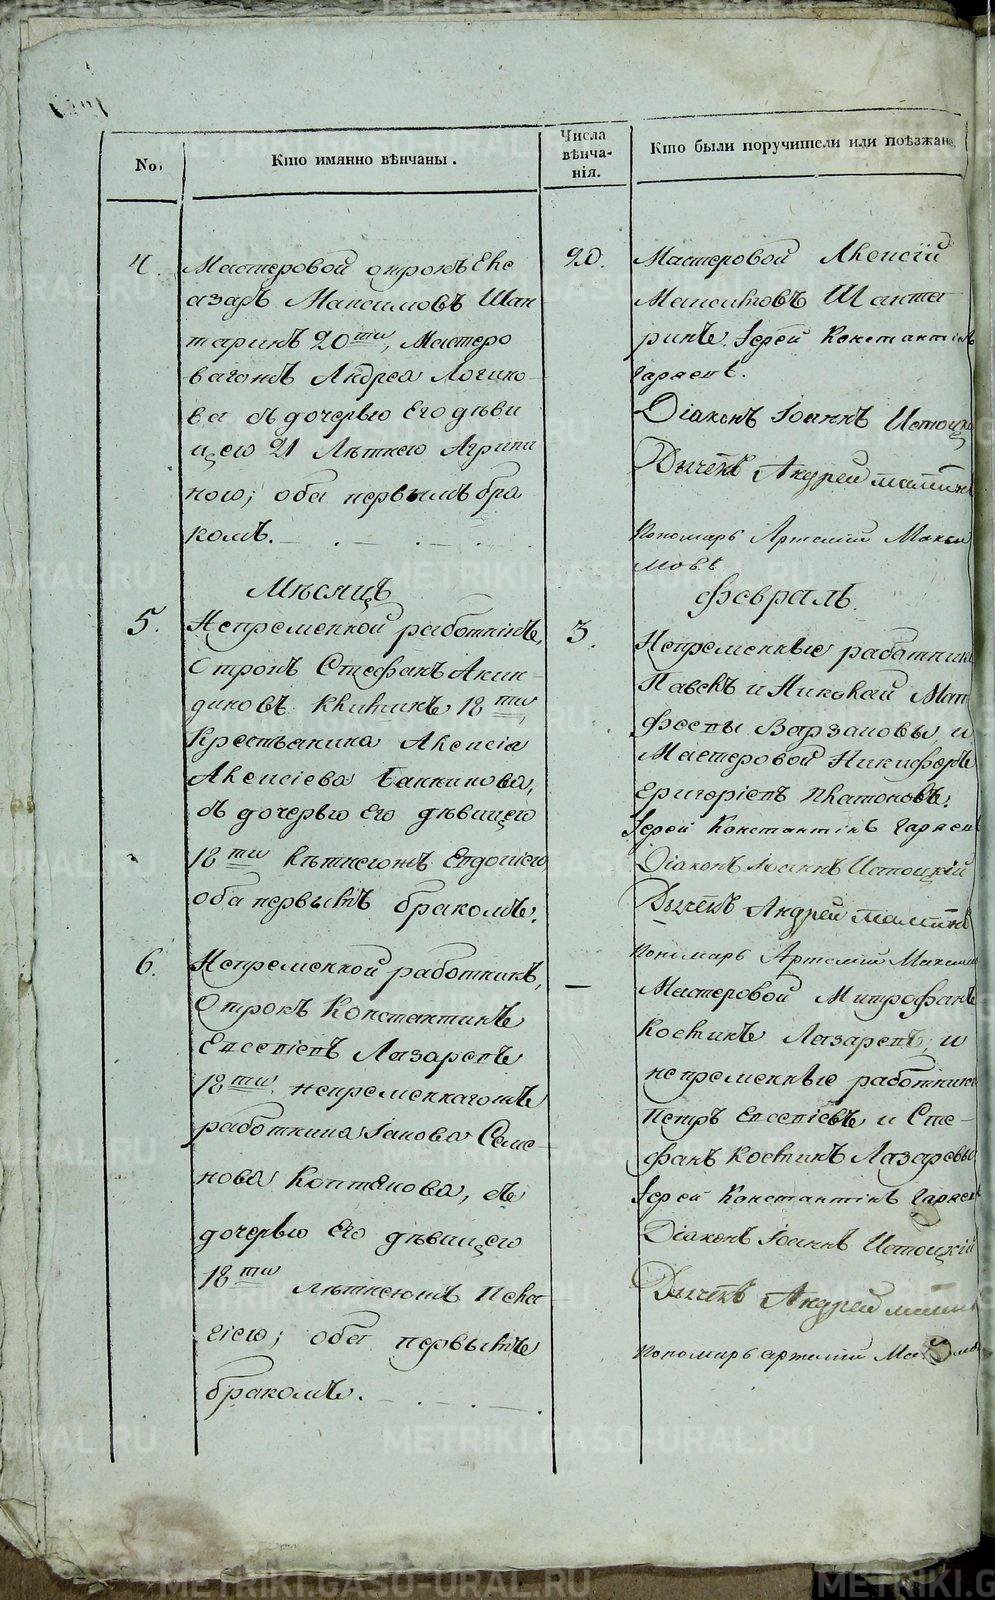 No.
Кто имянно вѣнчаны.
Числа
вѣнча-
нія.
Кто были поручители или поѣзжане.
4.
Мастеровой отрокъ Еле
азаръ Максимовъ Шан
таринъ 20ти, Мастеро
вагожъ Андрея Логино-
ва съ дочерью его дѣви
цею 21 лѣтнею Агрипи
ною; оба первымъ бра
комъ.
20.
Мастеровой Алексѣй
Максимовъ Шанта
ринъ. Іерей Константінъ
Діаконъ Іоаннъ Истоцкі
Дьячекъ Андрей Маминъ
Пономарь Артемий Макси
мовъ
Мѣсяцъ
Февраль.
5.
Непременной работникъ,
отрокъ Стефанъ Акин-
диновъ 18ти,
Крестьянина Алексія
Алексіева
съ дочерью его дѣвицею
18ти лѣтнеюжъ Евдокіею,
оба первымъ бракомъ.
3.
Непременные работники
Павелъ и Николай Мат
феевы Варзаковы и
Мастеровой Никифоръ
Григоріевъ Платоновъ.
Іерей Константінъ
Діаконъ Іоаннъ Истоцкій
Дьячекъ Андрей Маминъ
Пономарь Артемій Максим
6.
Непременной работникъ,
отрокъ Константинъ
Евсевіевъ Лазаревъ
18ти непременнагожъ
работника Іакова Семе-
нова Коптякова, съ
дочерью его дѣвицею
18ти лѣтнеюжъ Пела
гіею; оба первымъ
бракомъ.
—
Мастеровой Митрофанъ
Костинъ Лазаревъ, и
непременные работники
Петръ Евсевіевъ и Сте-
фанъ Костинъ Лазаревы
Іерей Константінъ
Діаконъ Іоаннъ Истоцкій
Дьячекъ Андрей Мамин
Пономарь Артемій
METRIKI.GASO-URAL.RU